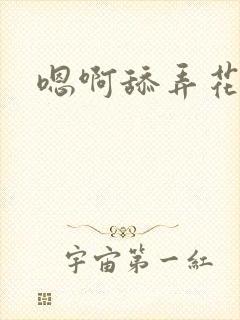 嗯啊舔弄花
宇宙第一紅